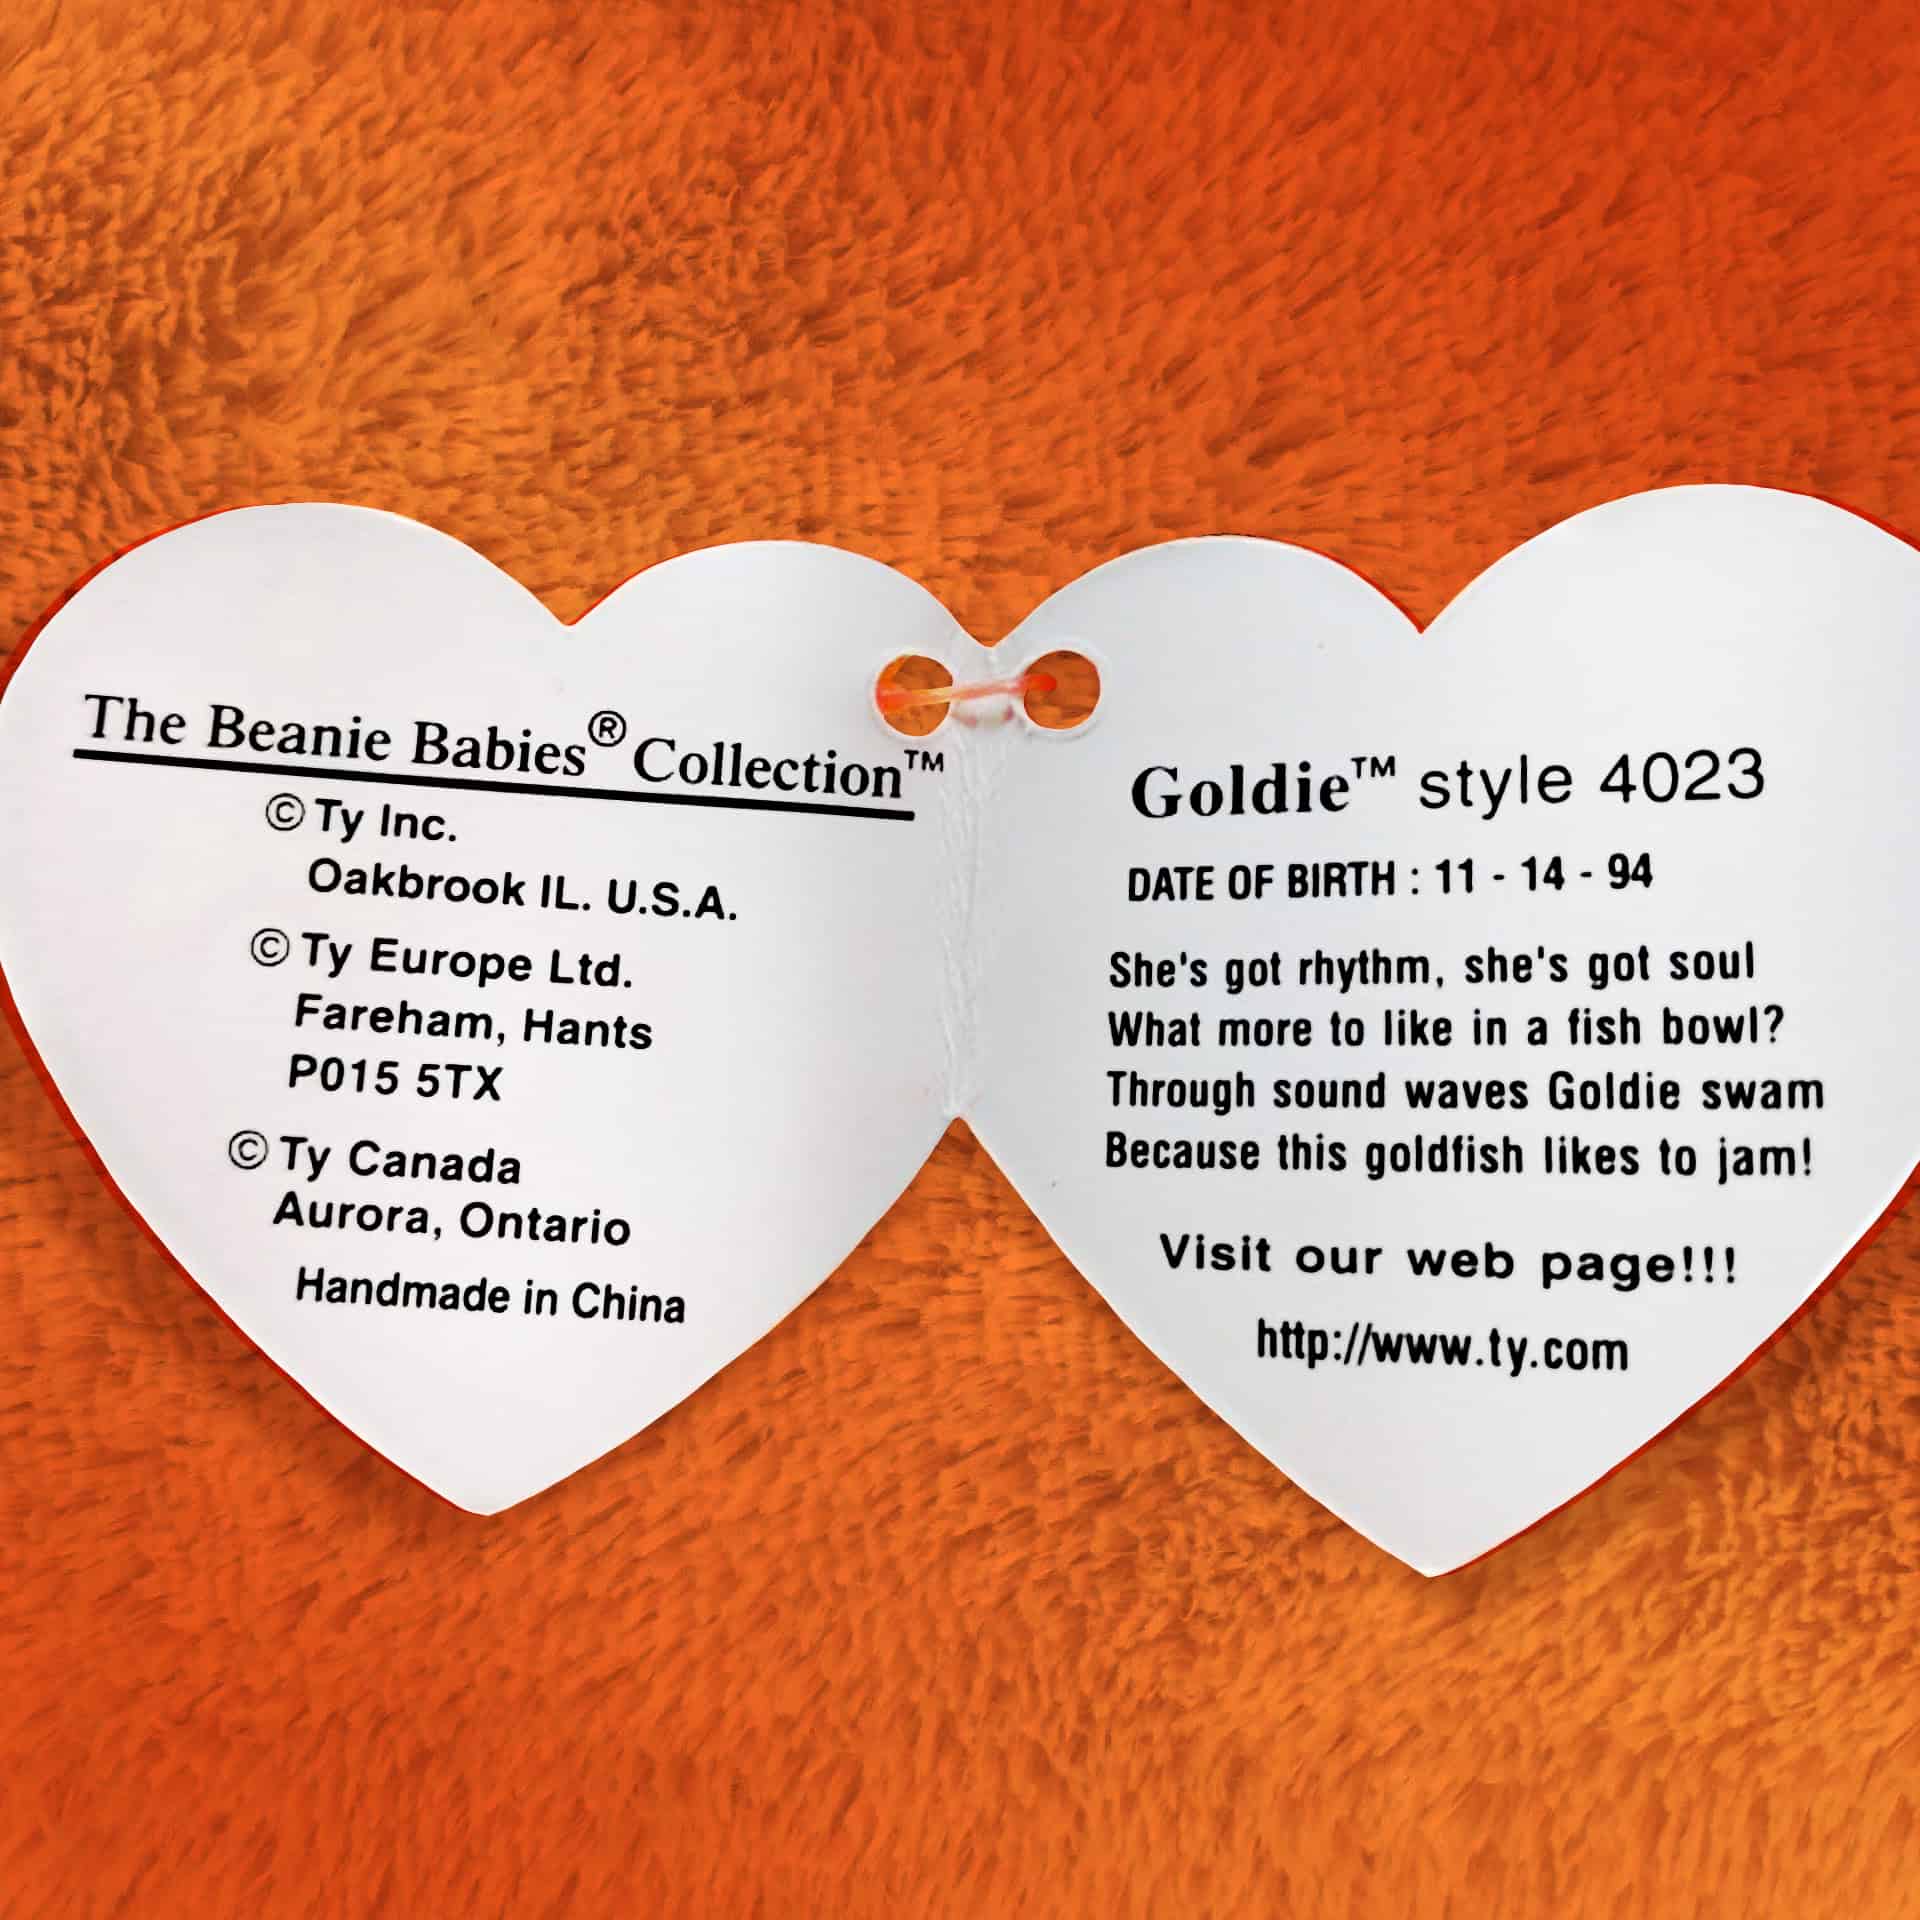 The Beanie Babies® Collection™
© Ty Inc.
Oakbrook IL. U.S.A.
© Ty Europe Ltd.
Fareham, Hants
P015 5TX
© Ty Canada
Aurora, Ontario
Handmade in China
Goldie™ style 4023
DATE OF BIRTH : 11 - 14 - 94
She's got rhythm, she's got soul
What more to like in a fish bowl?
Through sound waves Goldie swam
Because this goldfish likes to jam!
Visit our web page!!!
http://www.ty.com